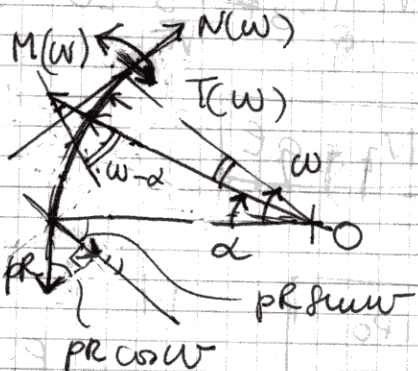 M(ω)
N(ω)
T(ω)
ω-α
ω
α
O
pR
pR sinω
pR cosω